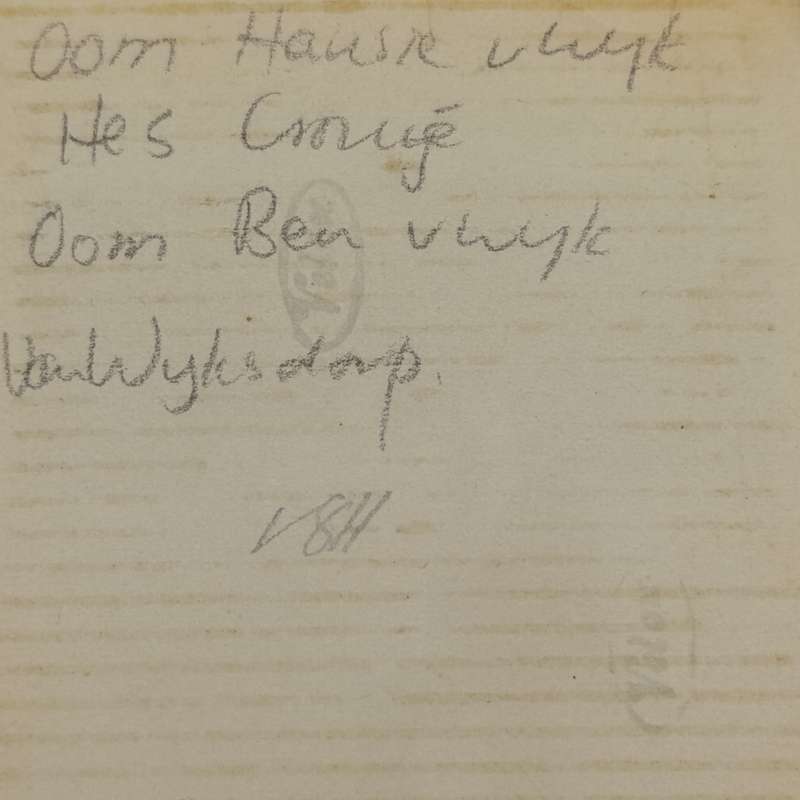 Oom Hansie vWyk
Hes Cronjé
Oom Ben vWyk
VanWyksdorp.